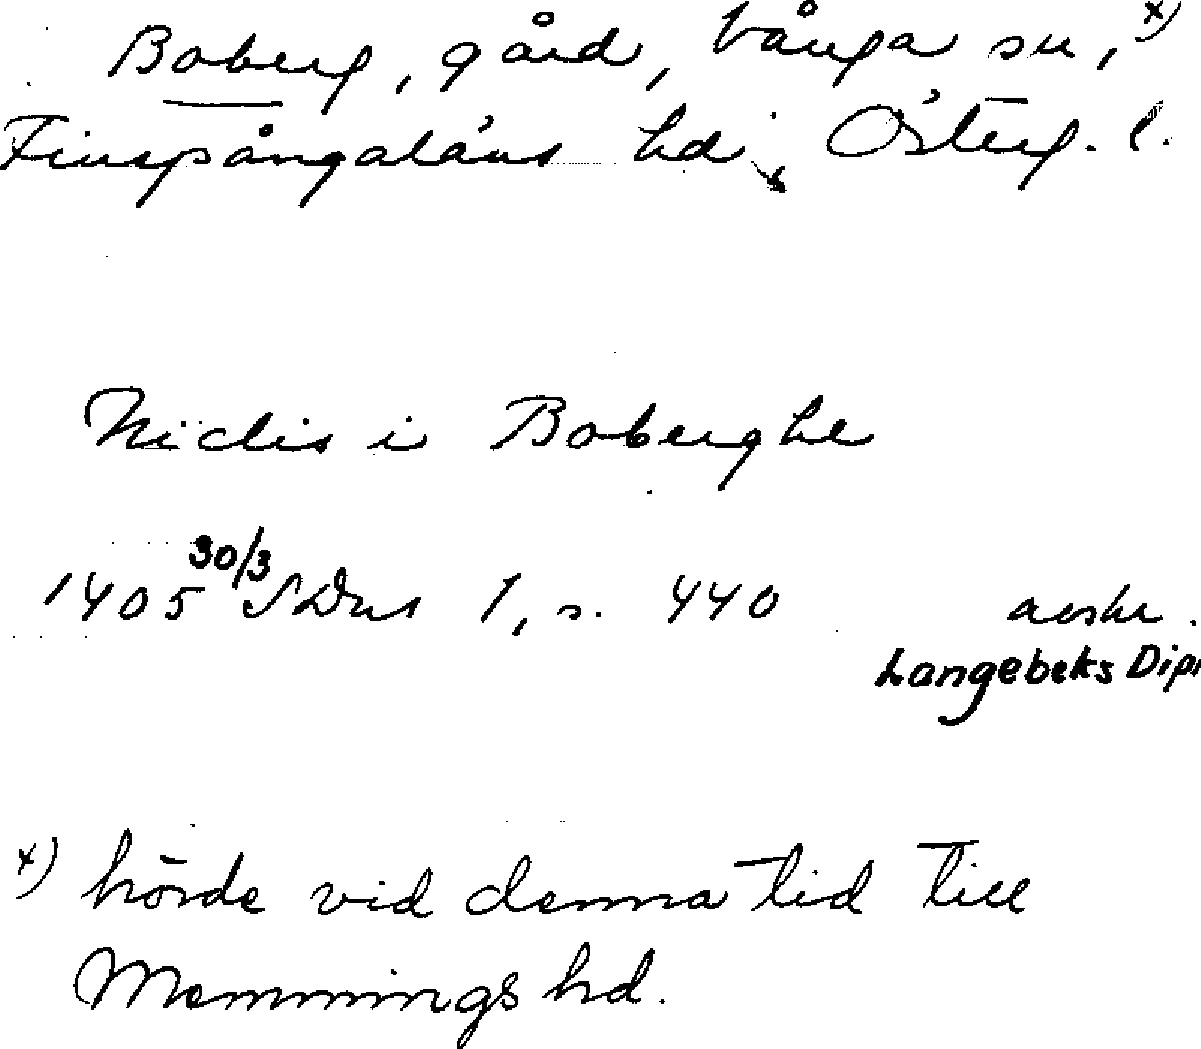 Boberg, gård, Vånga sn, x)
Finspångaläns hd, Österg. l.
Niclis i Boberghe
1405 30/3 SDns 1, s. 440 avskr.
Langebeks Dipl
x) hörde vid denna tid till
Memmings hd.